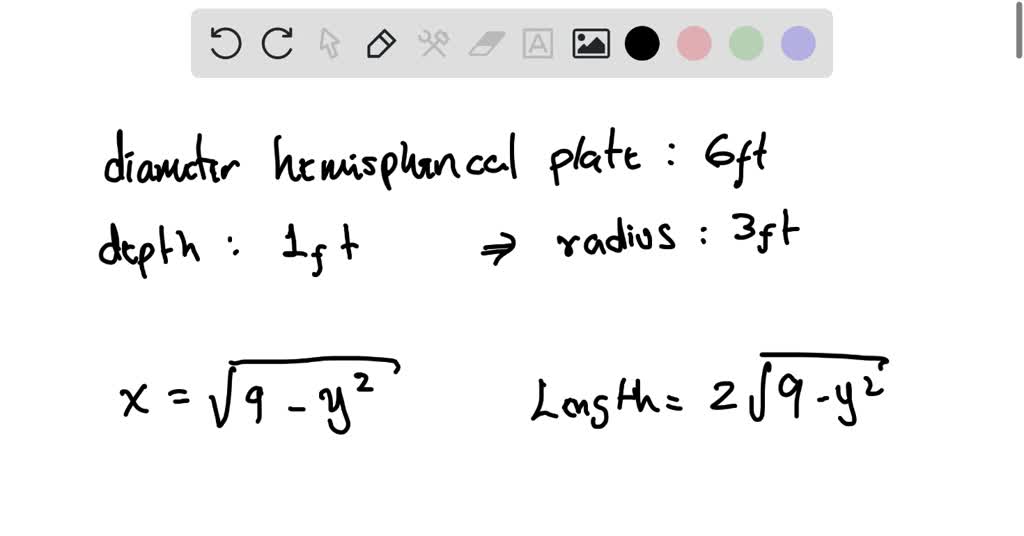 diameter hemispherical plate : 6ft
depth : 1ft ⇒ radius : 3ft
x = √(9 - y²) Length = 2√(9 - y²)